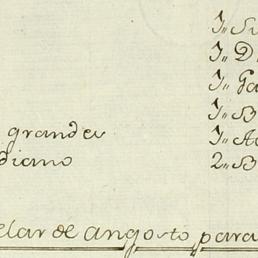 1,, Su
1,, D
1,, Ga
1,, B
grandes 1,, Ac
diano 2,, B
elar de angosto para